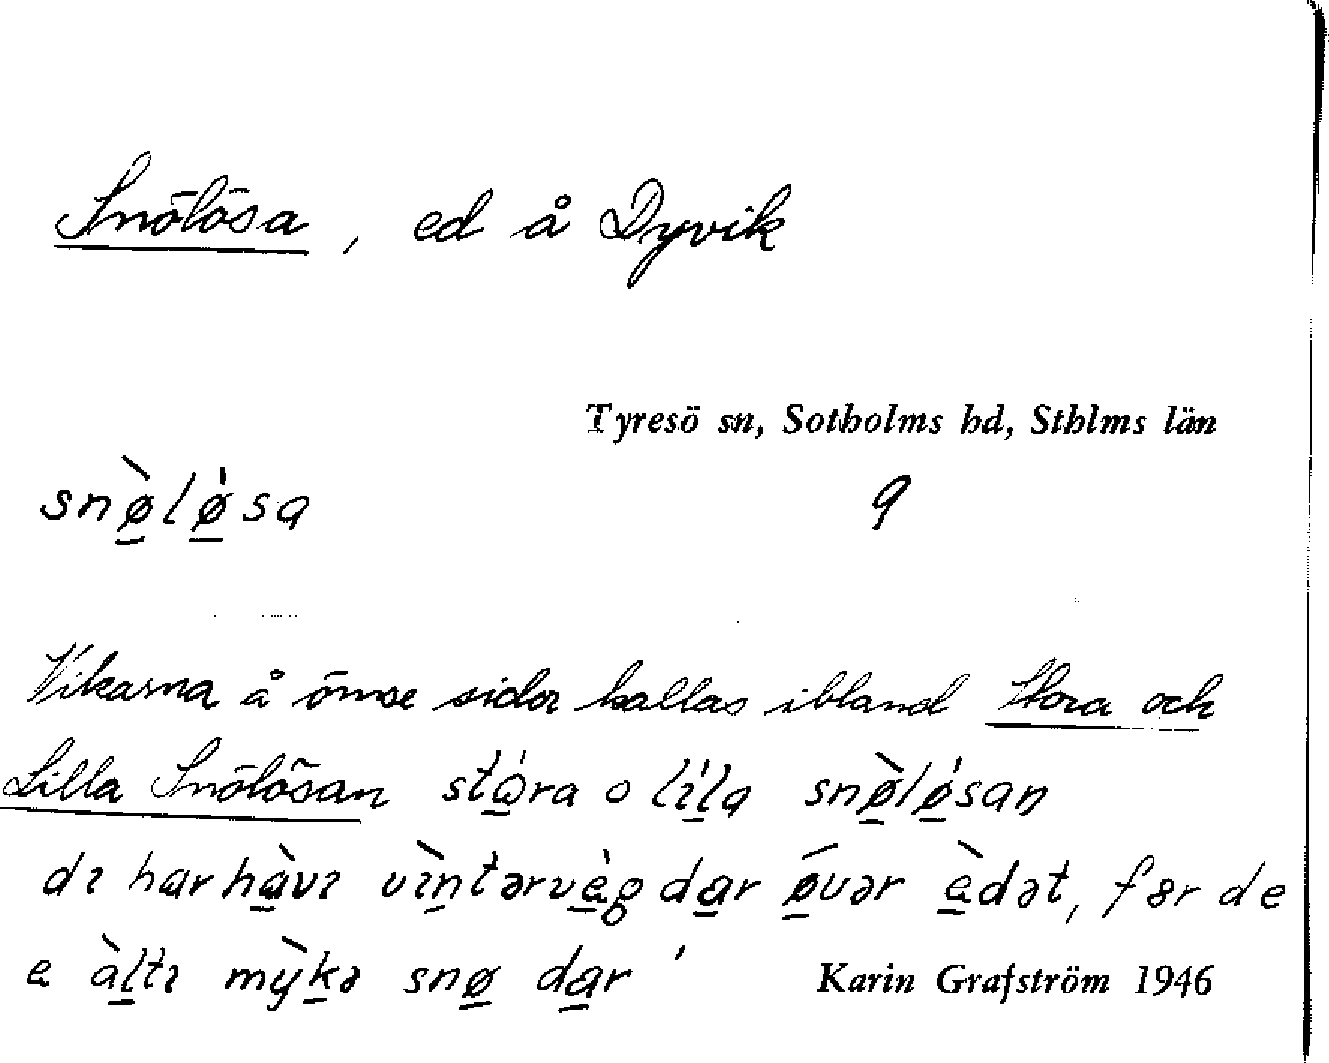 Snölösa, ed å Dyvik
Tyresö sn, Sotholms hd, Sthlms län
snø̀lø̍sa 9
Vikarna å ömse sidor kallas ibland Stora och
Lilla Snölösan stω̍ra o lı̍la snø̀lø̍san
dı har hàvı vı̀ntərvɛ̍g dar øvər èdət, før de
e àltı mỳkə snø dar'
Karin Grafström 1946